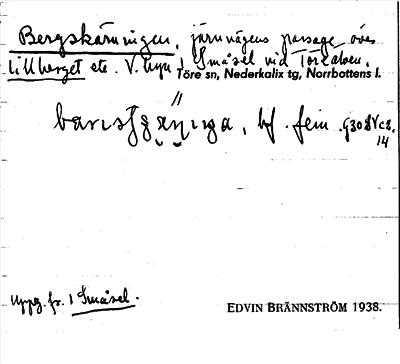 Bergskärningen, järnvägens passage över
Lillberget etc. V. byn Småsel vid Töreälven.
Töre sn, Nederkalix tg, Norrbottens l.
bf. fem.
14
Uppg. fr. 1 Småsel.
EDVIN BRÄNNSTRÖM 1938.